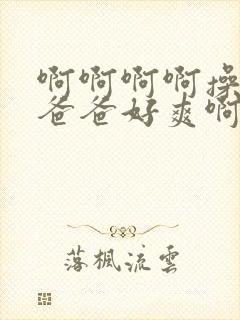 啊啊啊啊操
爸爸好爽啊
落楓流雲